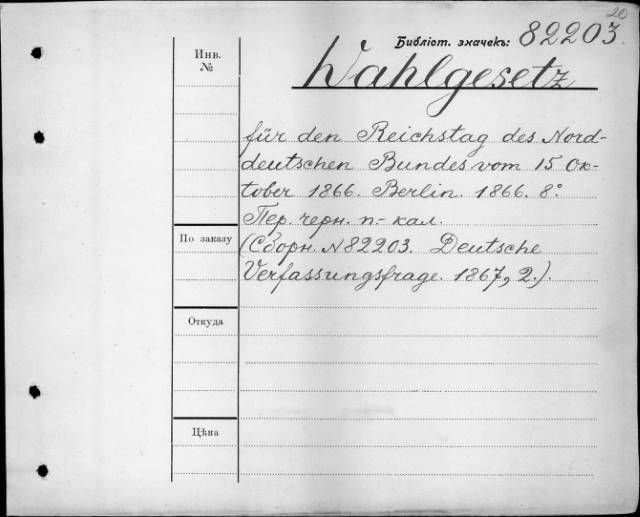 20
Библіот. значекъ: 82203.
Инв.
№
Wahlgesetz
für den Reichstag des Nord-
deutschen Bundes vom 15 Ok-
tober 1866. Berlin. 1866. 8°.
Пер. черн. п.- кал.
По заказу
(Сборн. N 82203. Deutsche
Verfassungsfrage. 1867, 2.).
Откуда
Цѣна